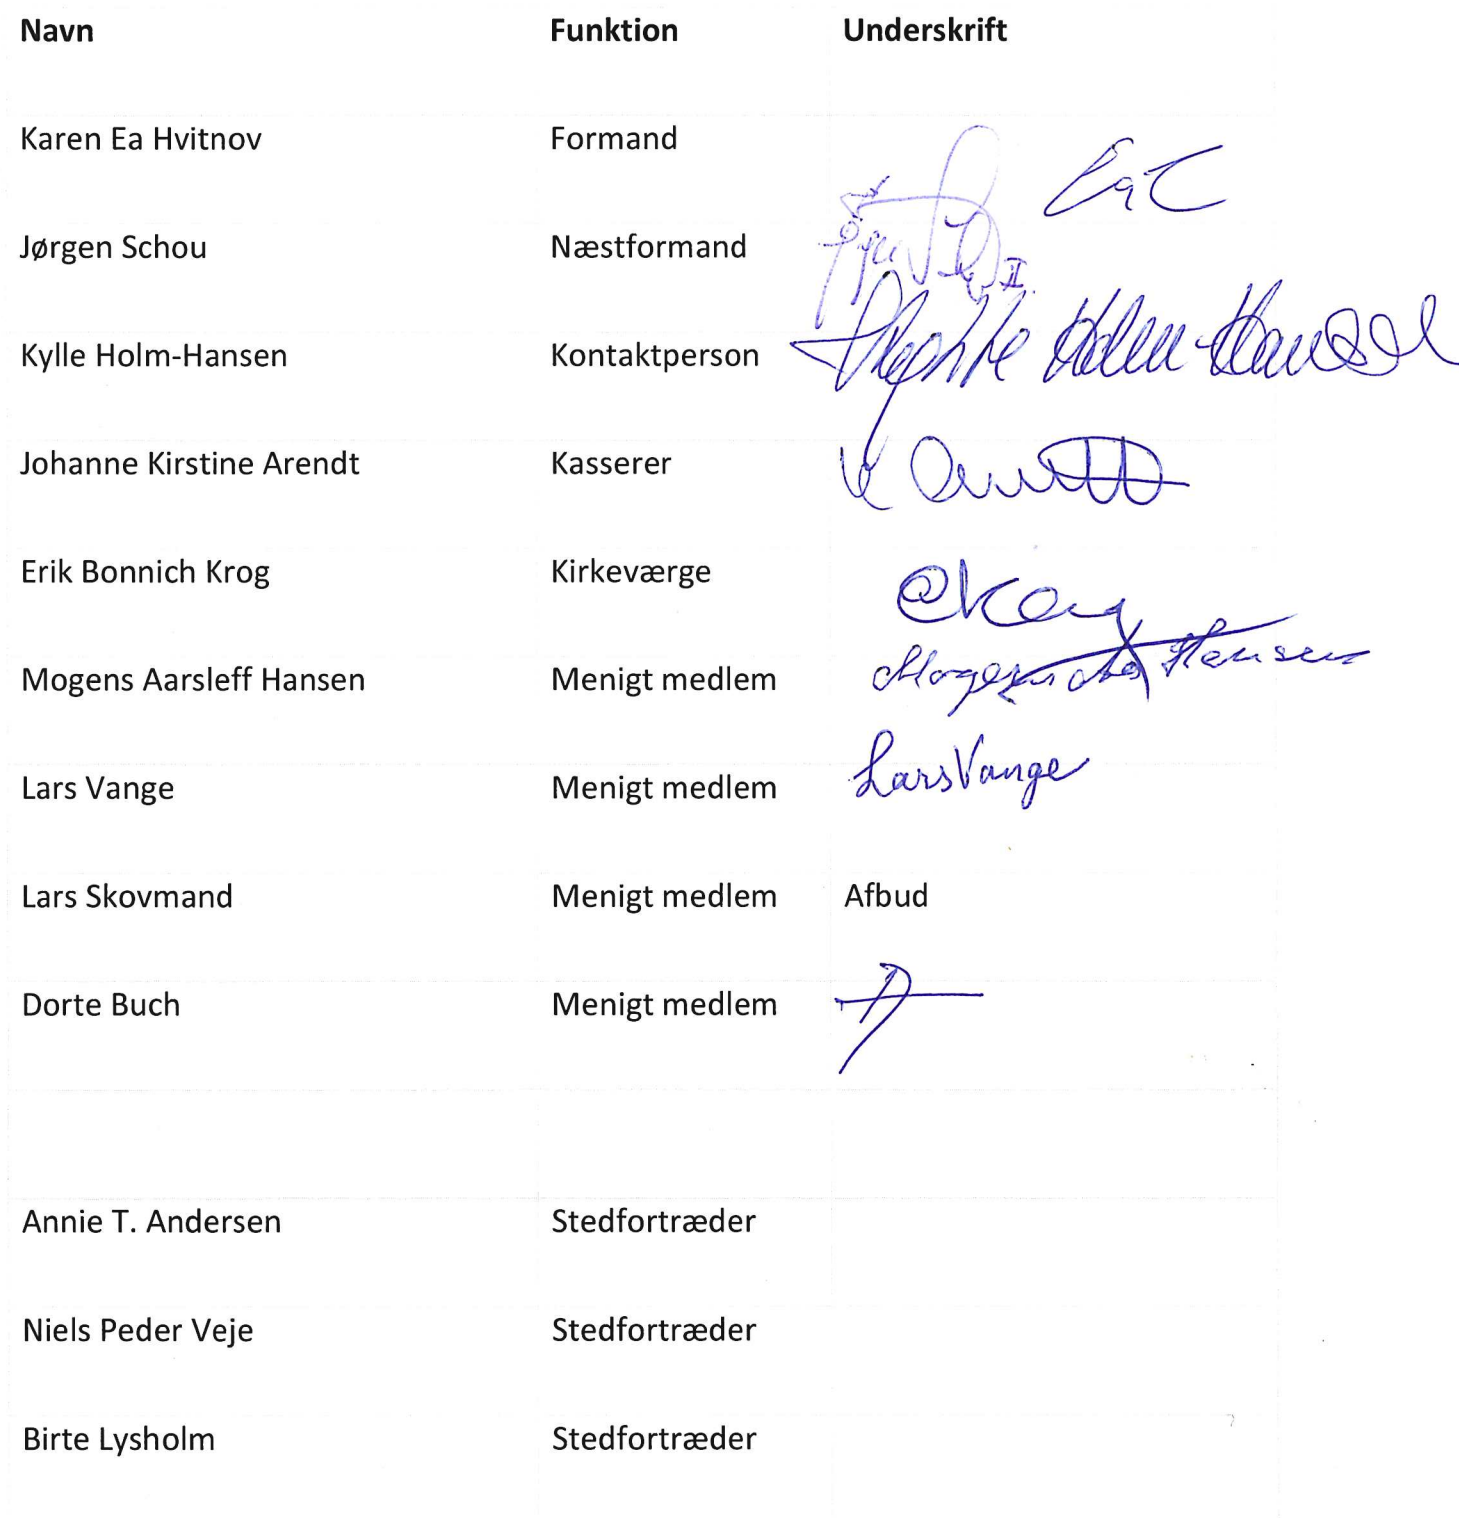 Navn Funktion Underskrift
Karen Ea Hvitnov Formand
Jørgen Schou Næstformand
Kylle Holm-Hansen Kontaktperson Holm-Hansen
Johanne Kirstine Arendt Kasserer
Erik Bonnich Krog Kirkeværge
Mogens Aarsleff Hansen Menigt medlem Mogens Aa Hansen
Lars Vange Menigt medlem Lars Vange
Lars Skovmand Menigt medlem Afbud
Dorte Buch Menigt medlem
Annie T. Andersen Stedfortræder
Niels Peder Veje Stedfortræder
Birte Lysholm Stedfortræder